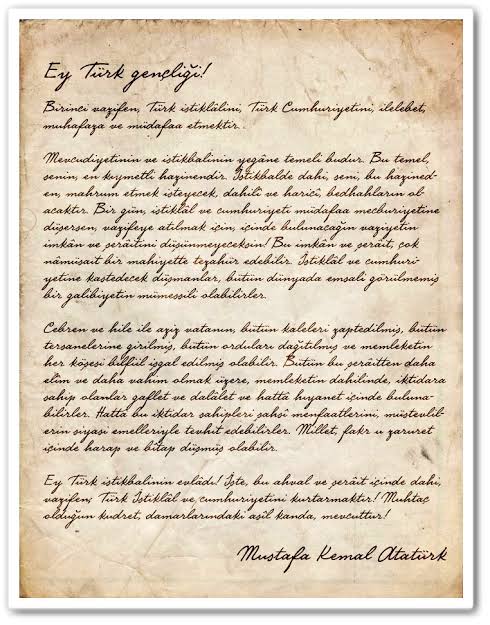 Ey Türk gençliği!
Birinci vazifen, Türk istiklâlini, Türk Cumhuriyetini, ilelebet,
muhafaza ve müdafaa etmektir.
Mevcudiyetinin ve istikbalinin yegâne temeli budur. Bu temel,
senin, en kıymetli hazinendir. İstikbalde dahi, seni, bu hazined-
en, mahrum etmek isteyecek, dahilî ve haricî, bedhahların ol-
acaktır. Bir gün, istiklâl ve cumhuriyeti müdafaa mecburiyetine
düşersen, vazifeye atılmak için, içinde bulunacağın vaziyetin
imkân ve şerâitini düşünmeyeceksin! Bu imkân ve şerâit, çok
nâmüsait bir mahiyette tezahür edebilir. İstiklâl ve cumhuri-
yetine kastedecek düşmanlar, bütün dünyada emsali görülmemiş
bir galibiyetin mümessili olabilirler.
Cebren ve hile ile aziz vatanın, bütün kaleleri zaptedilmiş, bütün
tersanelerine girilmiş, bütün orduları dağıtılmış ve memleketin
her köşesi bilfiil işgal edilmiş olabilir. Bütün bu şerâitten daha
elîm ve daha vahim olmak üzere, memleketin dahilinde, iktidara
sahip olanlar gaflet ve dalâlet ve hattâ hıyanet içinde buluna-
bilirler. Hattâ bu iktidar sahipleri şahsî menfaatlerini, müstevlil-
erin siyasi emelleriyle tevhit edebilirler. Millet, fakr u zaruret
içinde harap ve bîtap düşmüş olabilir.
Ey Türk istikbalinin evlâdı! İşte, bu ahval ve şerâit içinde dahi,
vazifen; Türk İstiklâl ve cumhuriyetini kurtarmaktır! Muhtaç
olduğun kudret, damarlarındaki asîl kanda, mevcuttur!
Mustafa Kemal Atatürk